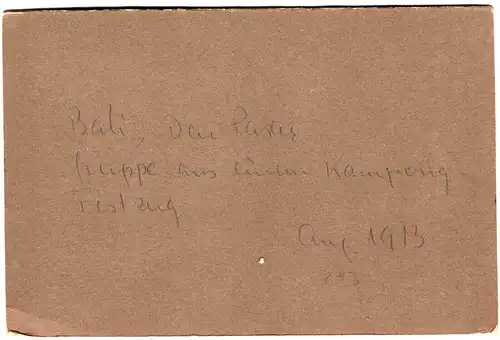 Bali, Den Pasar
Gruppe aus einem Kampong -
Festzug
Aug. 1913